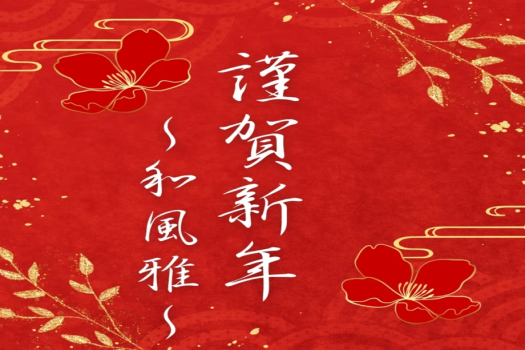 謹賀新年
～和風雅～